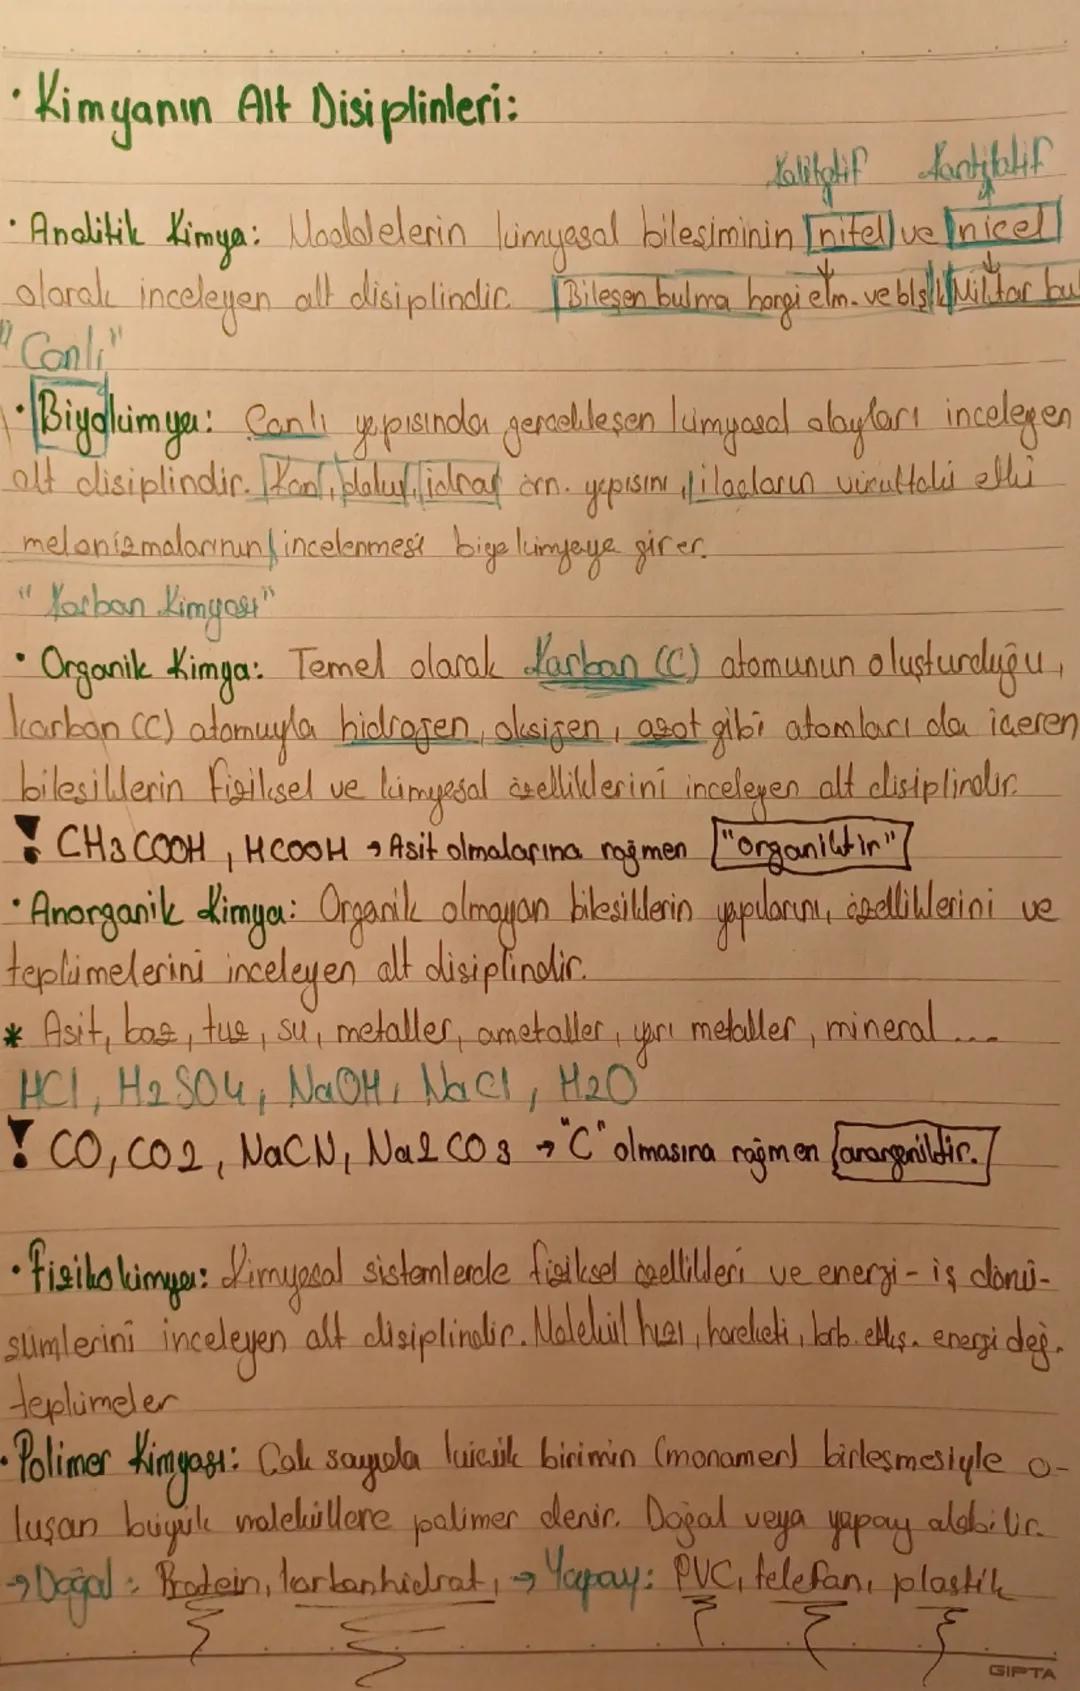 • Kimyanın Alt Disiplinleri:
Kalitatif Kantitatif
• Analitik Kimya: Maddelerin kimyasal bileşiminin nitel ve nicel
olarak inceleyen alt disiplindir. Bileşen bulma hangi elm. ve blş Miktar bul
"Canlı"
• Biyokimya: Canlı yapısında gerçekleşen kimyasal olayları inceleyen
alt disiplindir. Kan, doku, idrar örn. yapısını, ilaçların vücuttaki etki
mekanizmalarının incelenmesi biyokimyaya girer.
"Karbon Kimyası"
• Organik Kimya: Temel olarak Karbon (C) atomunun oluşturduğu,
karbon (C) atomuyla hidrojen, oksijen, azot gibi atomları da içeren
bileşiklerin fiziksel ve kimyasal özelliklerini inceleyen alt disiplindir.
! CH3COOH, HCOOH → Asit olmalarına rağmen "organiktir"
• Anorganik Kimya: Organik olmayan bileşiklerin yapılarını, özelliklerini ve
tepkimelerini inceleyen alt disiplindir.
* Asit, baz, tuz, su, metaller, ametaller, yarı metaller, mineral ...
HCl, H2SO4, NaOH, NaCl, H2O
! CO, CO2, NaCN, Na2CO3 → "C" olmasına rağmen anorganiktir.
• Fizikokimya: Kimyasal sistemlerde fiziksel özellikleri ve enerji - iş dönü-
şümlerini inceleyen alt disiplindir. Molekül hızı, hareketi, krb. etkş. enerji değ.
tepkimeler
• Polimer Kimyası: Çok sayıda küçük birimin (monomer) birleşmesiyle o-
luşan büyük moleküllere polimer denir. Doğal veya yapay olabilir.
→ Doğal: Protein, karbonhidrat, → Yapay: PVC, telefon, plastik
GIPTA